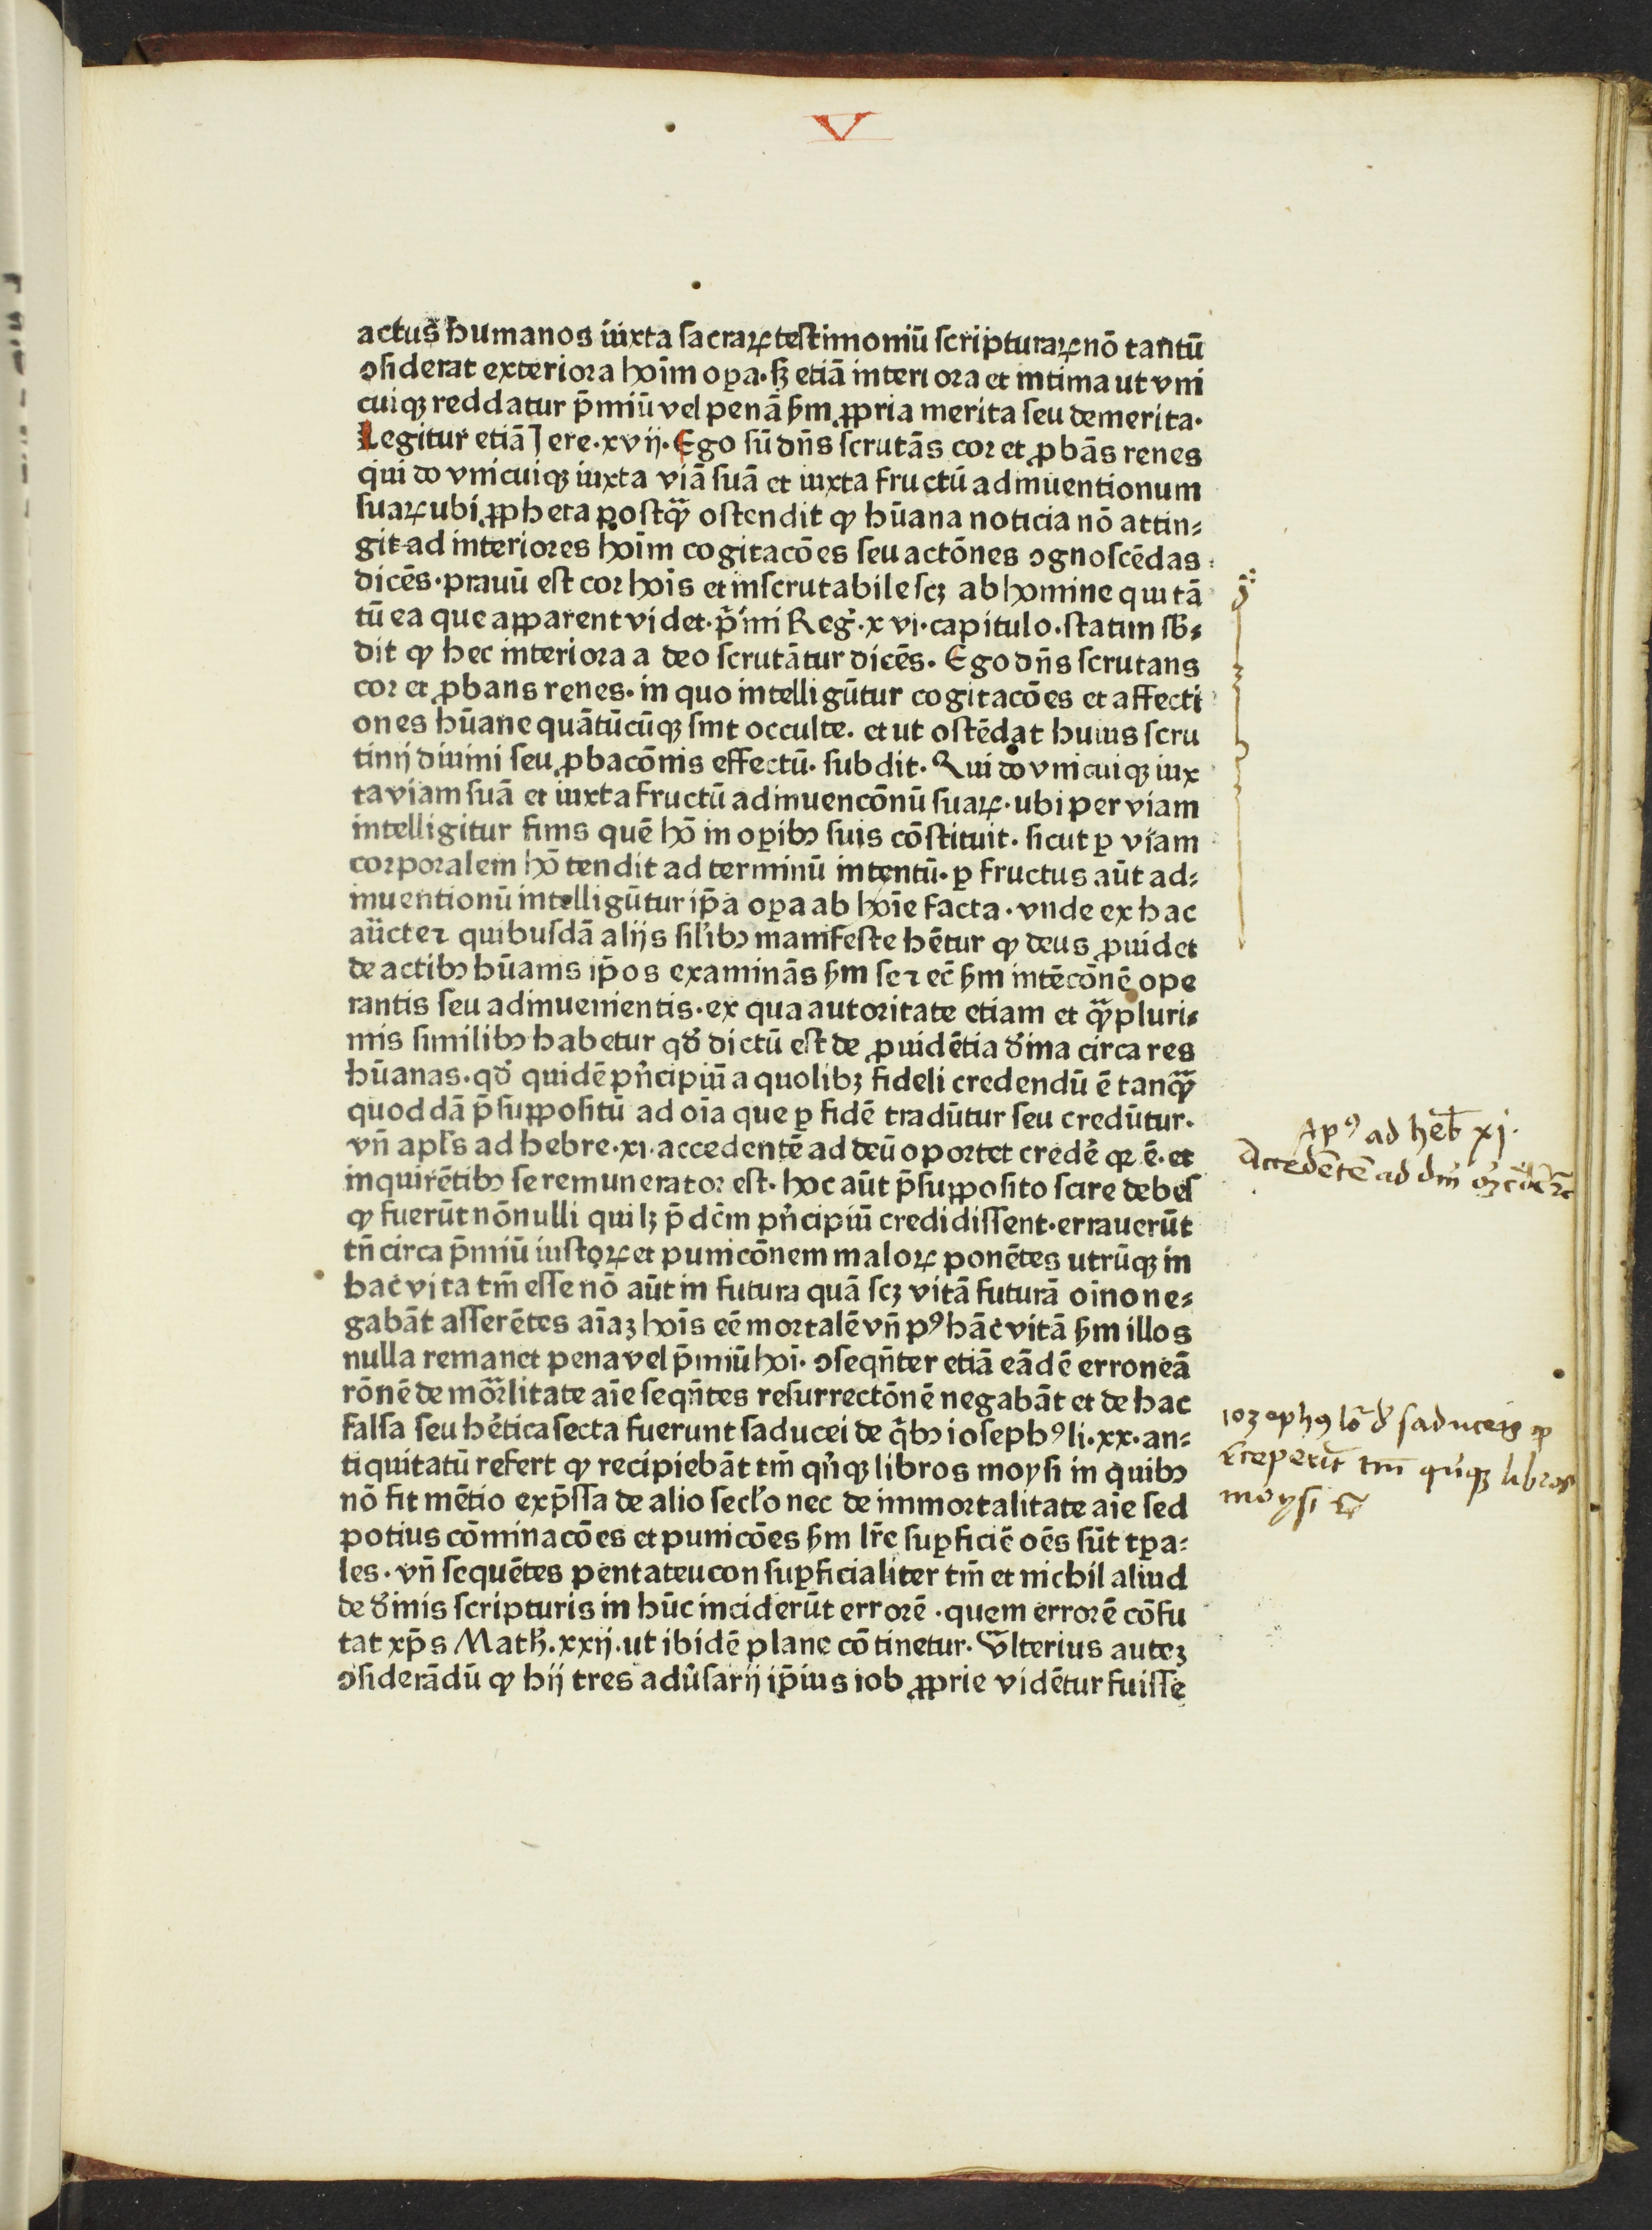 V
actus humanos iuxta sacraꝝ testimoniū scripturaꝝ nō tantū
ↄsiderat exteriora hoīm oꝑa· sꝫ etiā interiora et intima ut vni
cuiqꝫ reddatur p̄miū vel penā ẜm ꝓpria merita seu demerita·
Legitur etiā Jere·xvij· Ego sū dn̄s scrutās cor et ꝓbās renes
qui do vnicuiqꝫ iuxta viā suā et iuxta fructū adinuentionum
suaꝝ ubi ꝓpheta postqᷓꝫ ostendit ꝙ hūana noticia nō attin⸗
git ad interiores hoīm cogitacōes seu actōnes ↄgnoscēdas
dicēs· prauū est cor hoīs et inscrutabile scꝫ ab homine qui tā
tū ea que apparent videt· p̄imi Reg̉·xvi·capitulo·statim sb̄⸗
dit ꝙ hec interiora a deo scrutātur dicēs· Ego dn̄s scrutans
cor et ꝓbans renes· in quo intelligūtur cogitacōes et affecti
ones hūane quātūcūqꝫ sint occulte· et ut ostēdat huius scru
tinij diuini seu ꝓbacōnis effectū· subdit· Qui do vnicuiqꝫ iux
ta viam suā et iuxta fructū adinuencōnū suaꝝ· ubi per viam
intelligitur finis quē hō in oꝑibꝰ suis cōstituit· sicut ꝑ viam
corporalem hō tendit ad terminū intentū· ꝑ fructus aūt ad⸗
inuentionū intelligūtur ip̄a oꝑa ab hoīe facta· vnde ex hac
aūcte ⁊ quibusdā alijs sil̉ibꝰ manifeste hētur ꝙ deus ꝓuidet
de actibꝰ hūanis ip̄os examinās ẜm se ⁊ eē ẜm intēcōnē ope
rantis seu adinuenientis· ex qua autoritate etiam et qᷓꝫpluri⸗
mis similibꝰ habetur qd̉ dictū est de ꝓuidētia d̉ina circa res
hūanas· qd̉ quidē pn̉cipiū a quolibꝫ fideli credendū ē tanqᷓꝫ
quoddā p̄suppositū ad oīa que ꝑ fidē tradūtur seu credūtur·
vn̄ apl̉s ad hebre·xi·accedentē ad deū oportet credē̉ qꝛ ē· et
inquirētibꝰ se remunerator est· hoc aūt p̄supposito scire debes
ꝙ fuerūt nōnulli qui lꝫ p̄dc̄m pn̉cipiū credidissent· errauerūt
tn̄ circa p̄miū iustoꝝ et punicōnem maloꝝ ponētes utrūqꝫ in
hac vita tm̄ esse nō aūt in futura quā scꝫ vitā futurā oīno ne⸗
gabāt asserētes aīaꝫ hoīs eē mortalē vn̄ pꝰ hāc vitā ẜm illos
nulla remanet pena vel p̄miū hoī· ↄseqn̄ter etiā eādē erroneā
rōnē de mōrlitate aīe seqn̄tes resurrectōnē negabāt et de hac
falsa seu hē̉tica secta fuerunt saducei de qͥbꝰ iosephꝰ li·xx·an⸗
tiquitatū refert ꝙ recipiebāt tm̄ qn̉qꝫ libros moysi in quibꝰ
nō fit mētio exp̄ssa de alio secl̉o nec de immortalitate aīe sed
potius cōminacōes et punicōes ẜm lr̄e suꝑficiē oēs sūt tꝑa⸗
les· vn̄ sequētes pentateucon suꝑficialiter tm̄ et nichil aliud
de d̉inis scripturis in hūc inciderūt errorē· quem errorē cōfu
tat xp̄s Math̉·xxij·ut ibidē plane cōtinetur· Vlterius auteꝫ
ↄsiderādū ꝙ hij tres adūsarij ip̄ius iob ꝓprie vidētur fuisse
Apꝰ ad heb̄ xj·
Accedētē ad dm̄
Iozephꝰ saduceis
tm̄ qn̉qꝫ libros
moysi